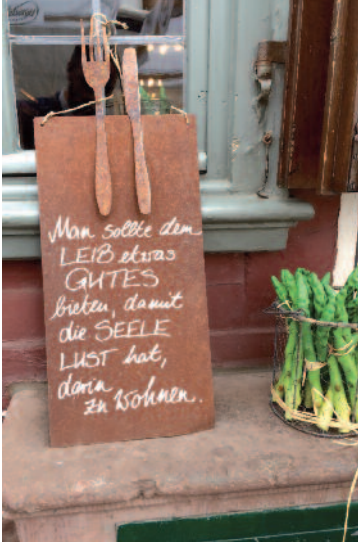 Man sollte dem
LEIB etwas
GUTES
bieten, damit
die SEELE
LUST hat,
darin
zu wohnen.